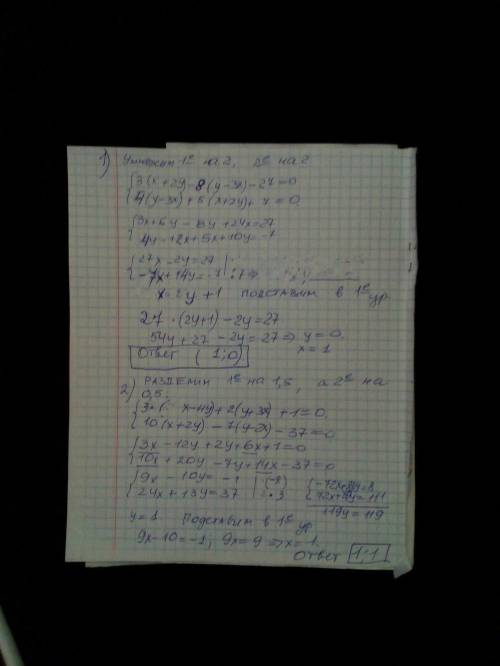 1) Умножим 1е на 2, 2е на 2
3(x+2y)-8(y-3x)-27=0
4(y-3x)+5(x+2y)+7=0
3x+6y-8y+24x=27
4y-12x+5x+10y=-7
27x-2y=27
-7x+14y=-7 | :7
x=2y+1 подставим в 1е ур.
27·(2y+1)-2y=27
54y+27-2y=27 ⇒ y=0
x=1
Ответ (1;0)
2) разделим 1е на 1,5, а 2е на
0,5.
x-4y)+2(y+3x)+1=0
10(x+2y)-7(y-2x)-37=0
3x-12y+2y+6x+1=0
10x+20y-7y+14x-37=0
9x-10y=-1
24x+13y=37 | ·3
=111
119y=119
y=1 Подставим в 1е ур
9x-10=-1; 9x=9 ⇒ x=1.
Ответ 1;1